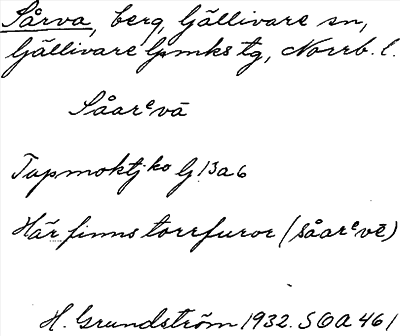 Sårva, berg, Gällivare sn,
Gällivare lpmks tg, Norrb. l.
Såarᵉvā
Tapmoktj-ko G 13a6
Här finns torrfuror (såarᵉvē)
H. Grundström 1932. SOA 461